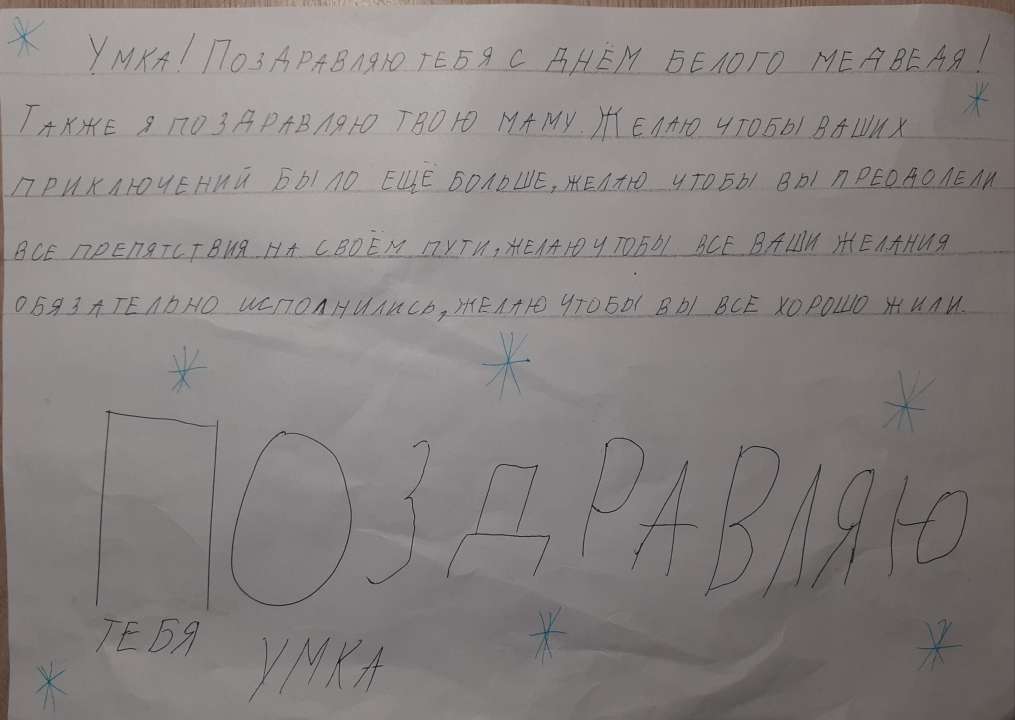 Умка! Поздравляю тебя с днём белого медведя!
Также я поздравляю твою маму. Желаю чтобы ваших
приключений было ещё больше, желаю чтобы вы преодолели
все препятствия на своём пути, желаю чтобы все ваши желания
обязательно исполнились, желаю чтобы вы все хорошо жили.
ПОЗДРАВЛЯЮ
ТЕБЯ
УМКА